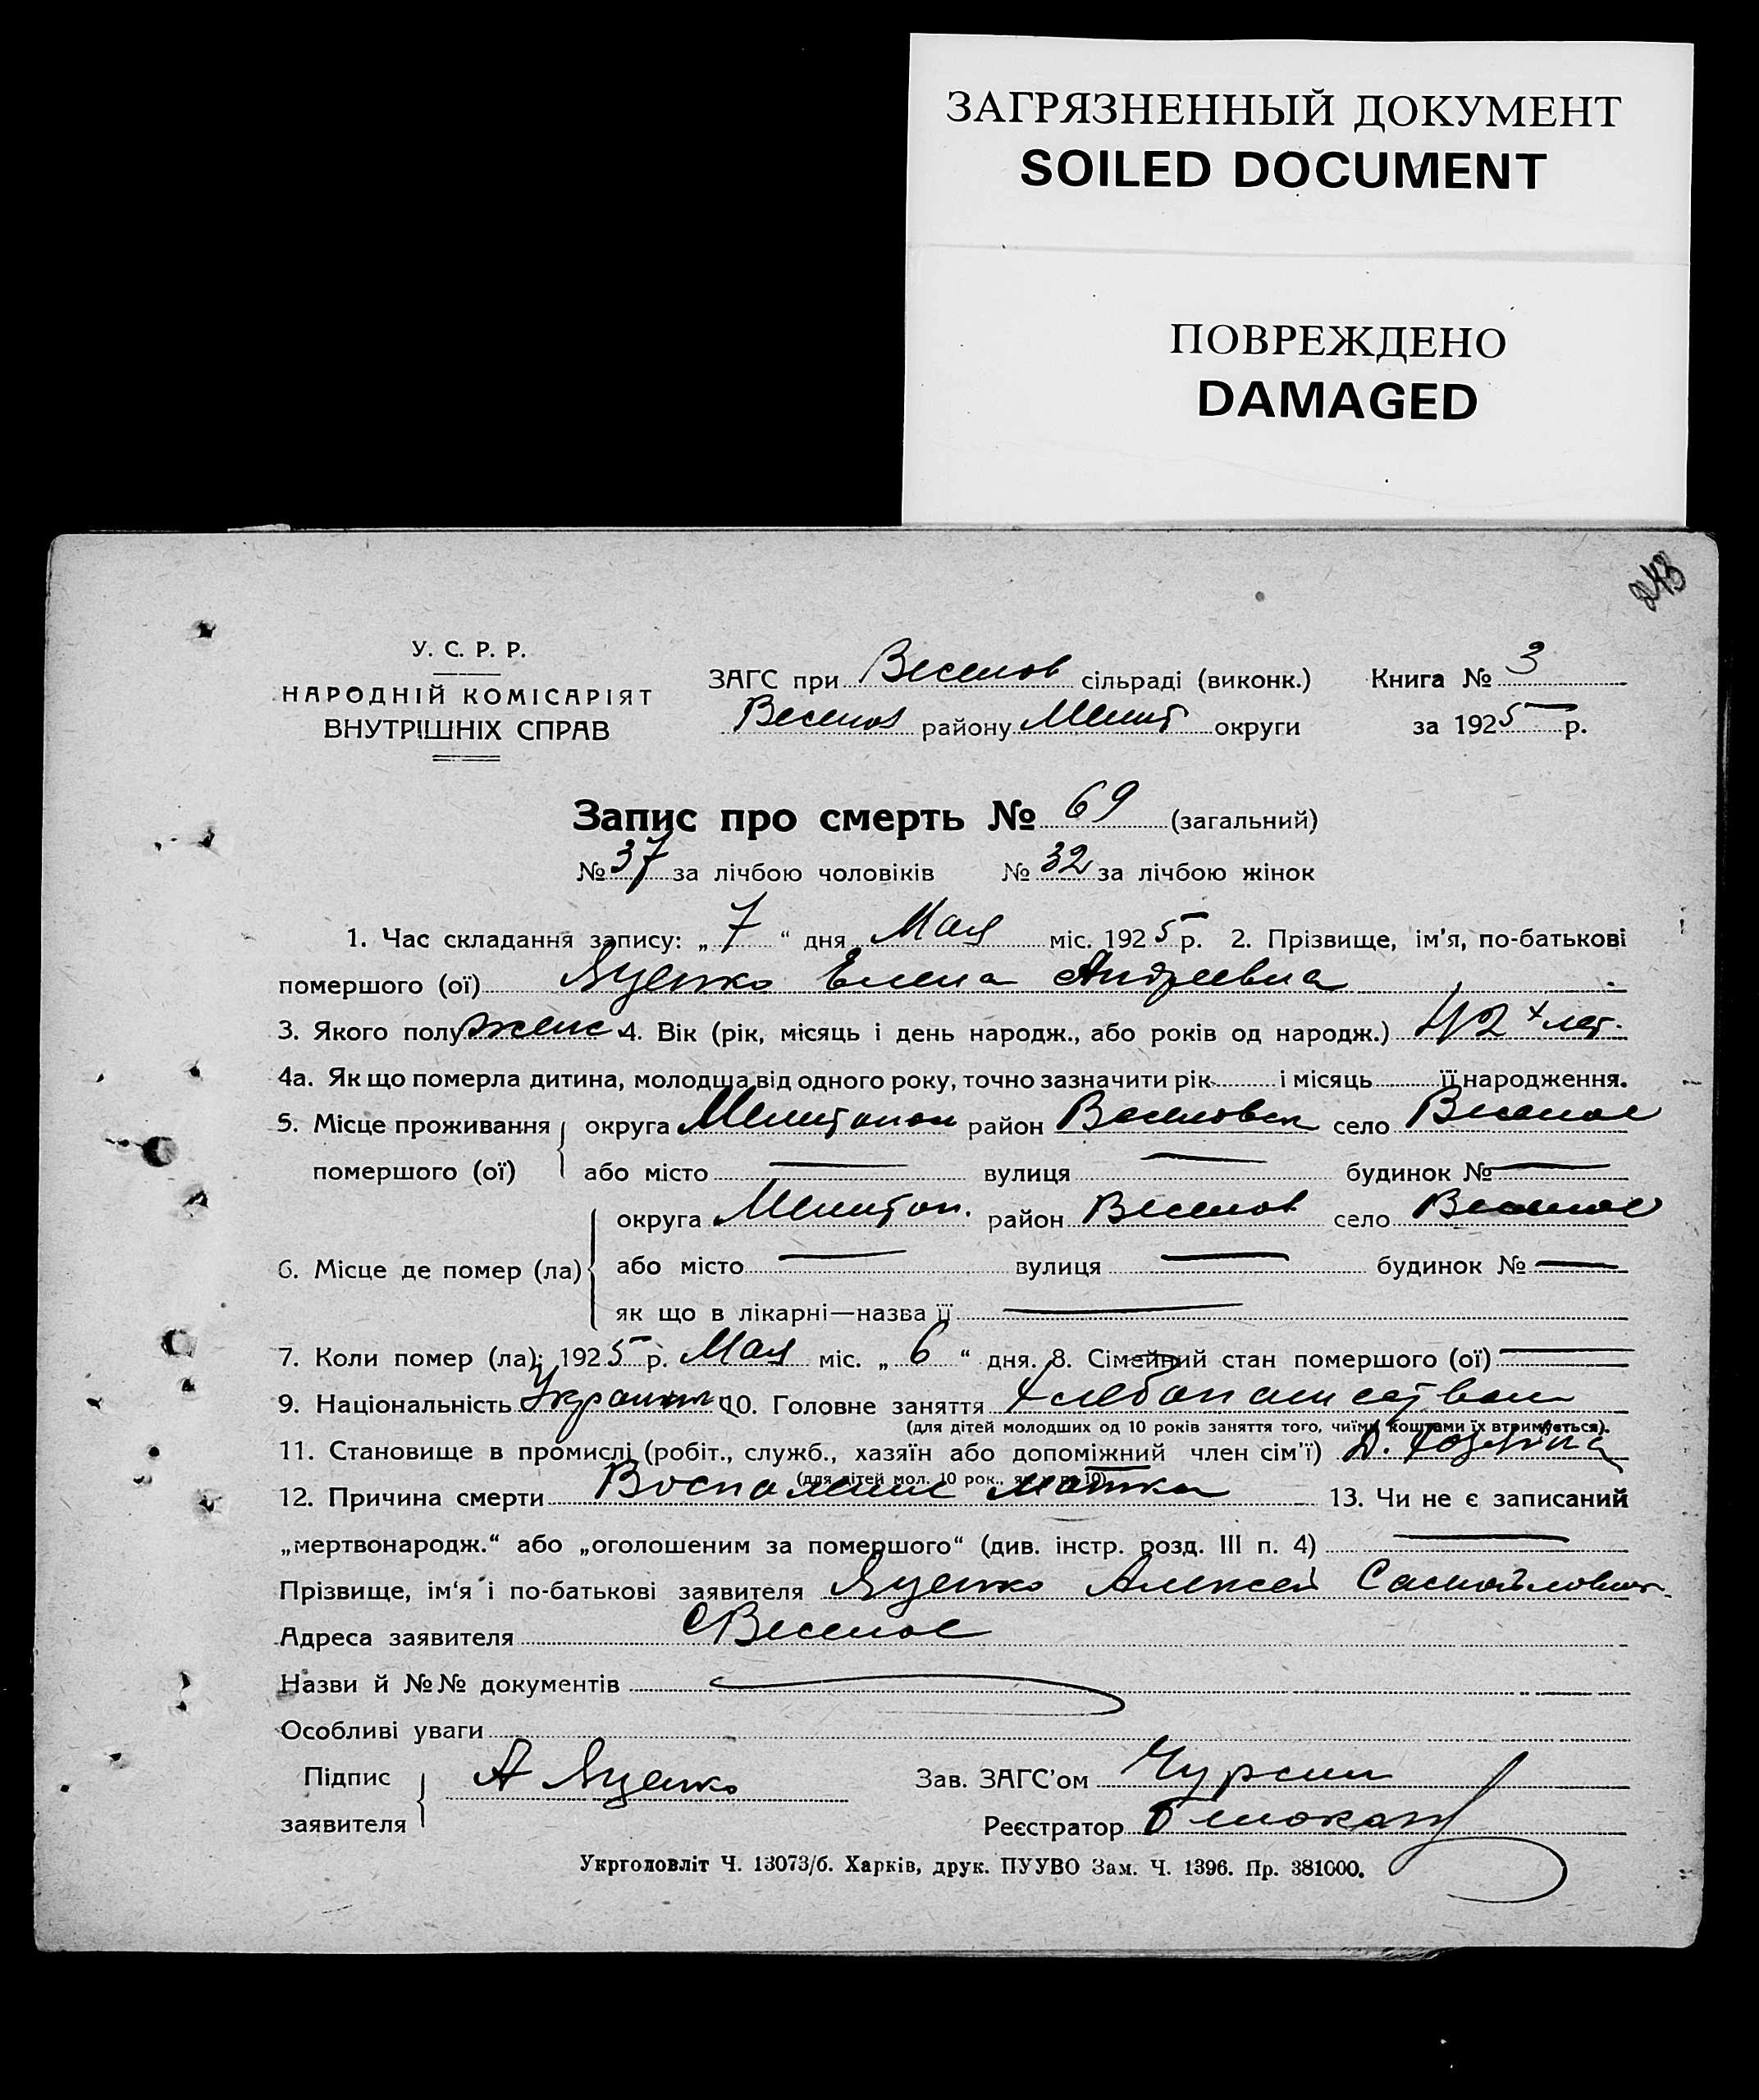 ЗАГРЯЗНЕННЫЙ ДОКУМЕНТ
SOILED DOCUMENT
ПОВРЕЖДЕНО
DAMAGED
У. С. Р. Р.
НАРОДНІЙ КОМІСАРІЯТ
ВНУТРІШНІХ СПРАВ
ЗАГС при Веселов сільраді (виконк.) Книга № 3
Веселов району Мелит округи за 1925 р.
Запис про смерть № 69 (загальний)
№ 37 за лічбою чоловіків № 32 за лічбою жінок
1. Час складання запису: „ 7 “ дня Мая міс. 1925 р. 2. Прізвище, ім'я, по-батькові
помершого (ої) Яценко Елена Андреевна
3. Якого полу женс 4. Вік (рік, місяць і день народж., або років од народж.) 42 х лет.
4а. Як що померла дитина, молодша від одного року, точно зазначити рік і місяць її народження.
5. Місце проживання округа Мелитопол район Веселовск село Веселое
помершого (ої) або місто — вулиця — будинок № —
округа Мелитоп. район Веселов село Веселое
6. Місце де помер (ла) або місто — вулиця — будинок № —
як що в лікарні—назва її —
7. Коли помер (ла): 1925 р. Мая міс. „ 6 “ дня. 8. Сімейний стан помершого (ої) —
9. Національність 10. Головне заняття
(для дітей молодших од 10 років заняття того, чиїми коштами їх втримується).
11. Становище в промислі (робіт., служб., хазяїн або допоміжний член сім'ї)
(для дітей мол. 10 рок., як у п. 10)
12. Причина смерти Воспаление матки 13. Чи не є записаний
„мертвонародж.“ або „оголошеним за помершого“ (див. інстр. розд. III п. 4) —
Прізвище, ім'я і по-батькові заявителя Яценко Алексей Самойлович
Адреса заявителя с Веселое
Назви й №№ документів —
Особливі уваги
Підпис заявителя А Яценко Зав. ЗАГС'ом
Реєстратор
Укрголовліт Ч. 13073/б. Харків, друк. ПУУВО Зам. Ч. 1396. Пр. 381000.